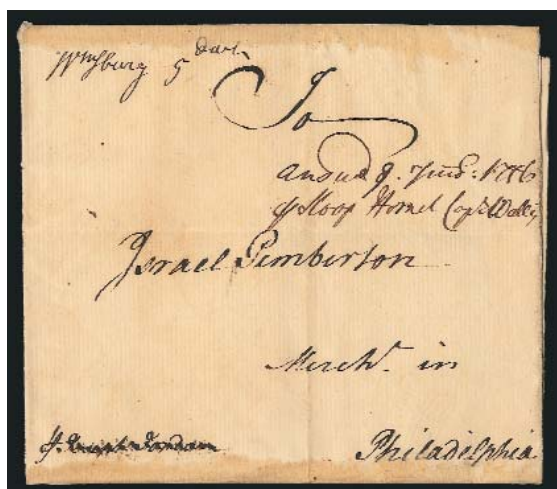 Wmsburg 5 dwt
To
answd 9. 7mo: 1746
⅌ Sloop Hornet Capt
Israel Pemberton
Mercht. in
Philadelphia